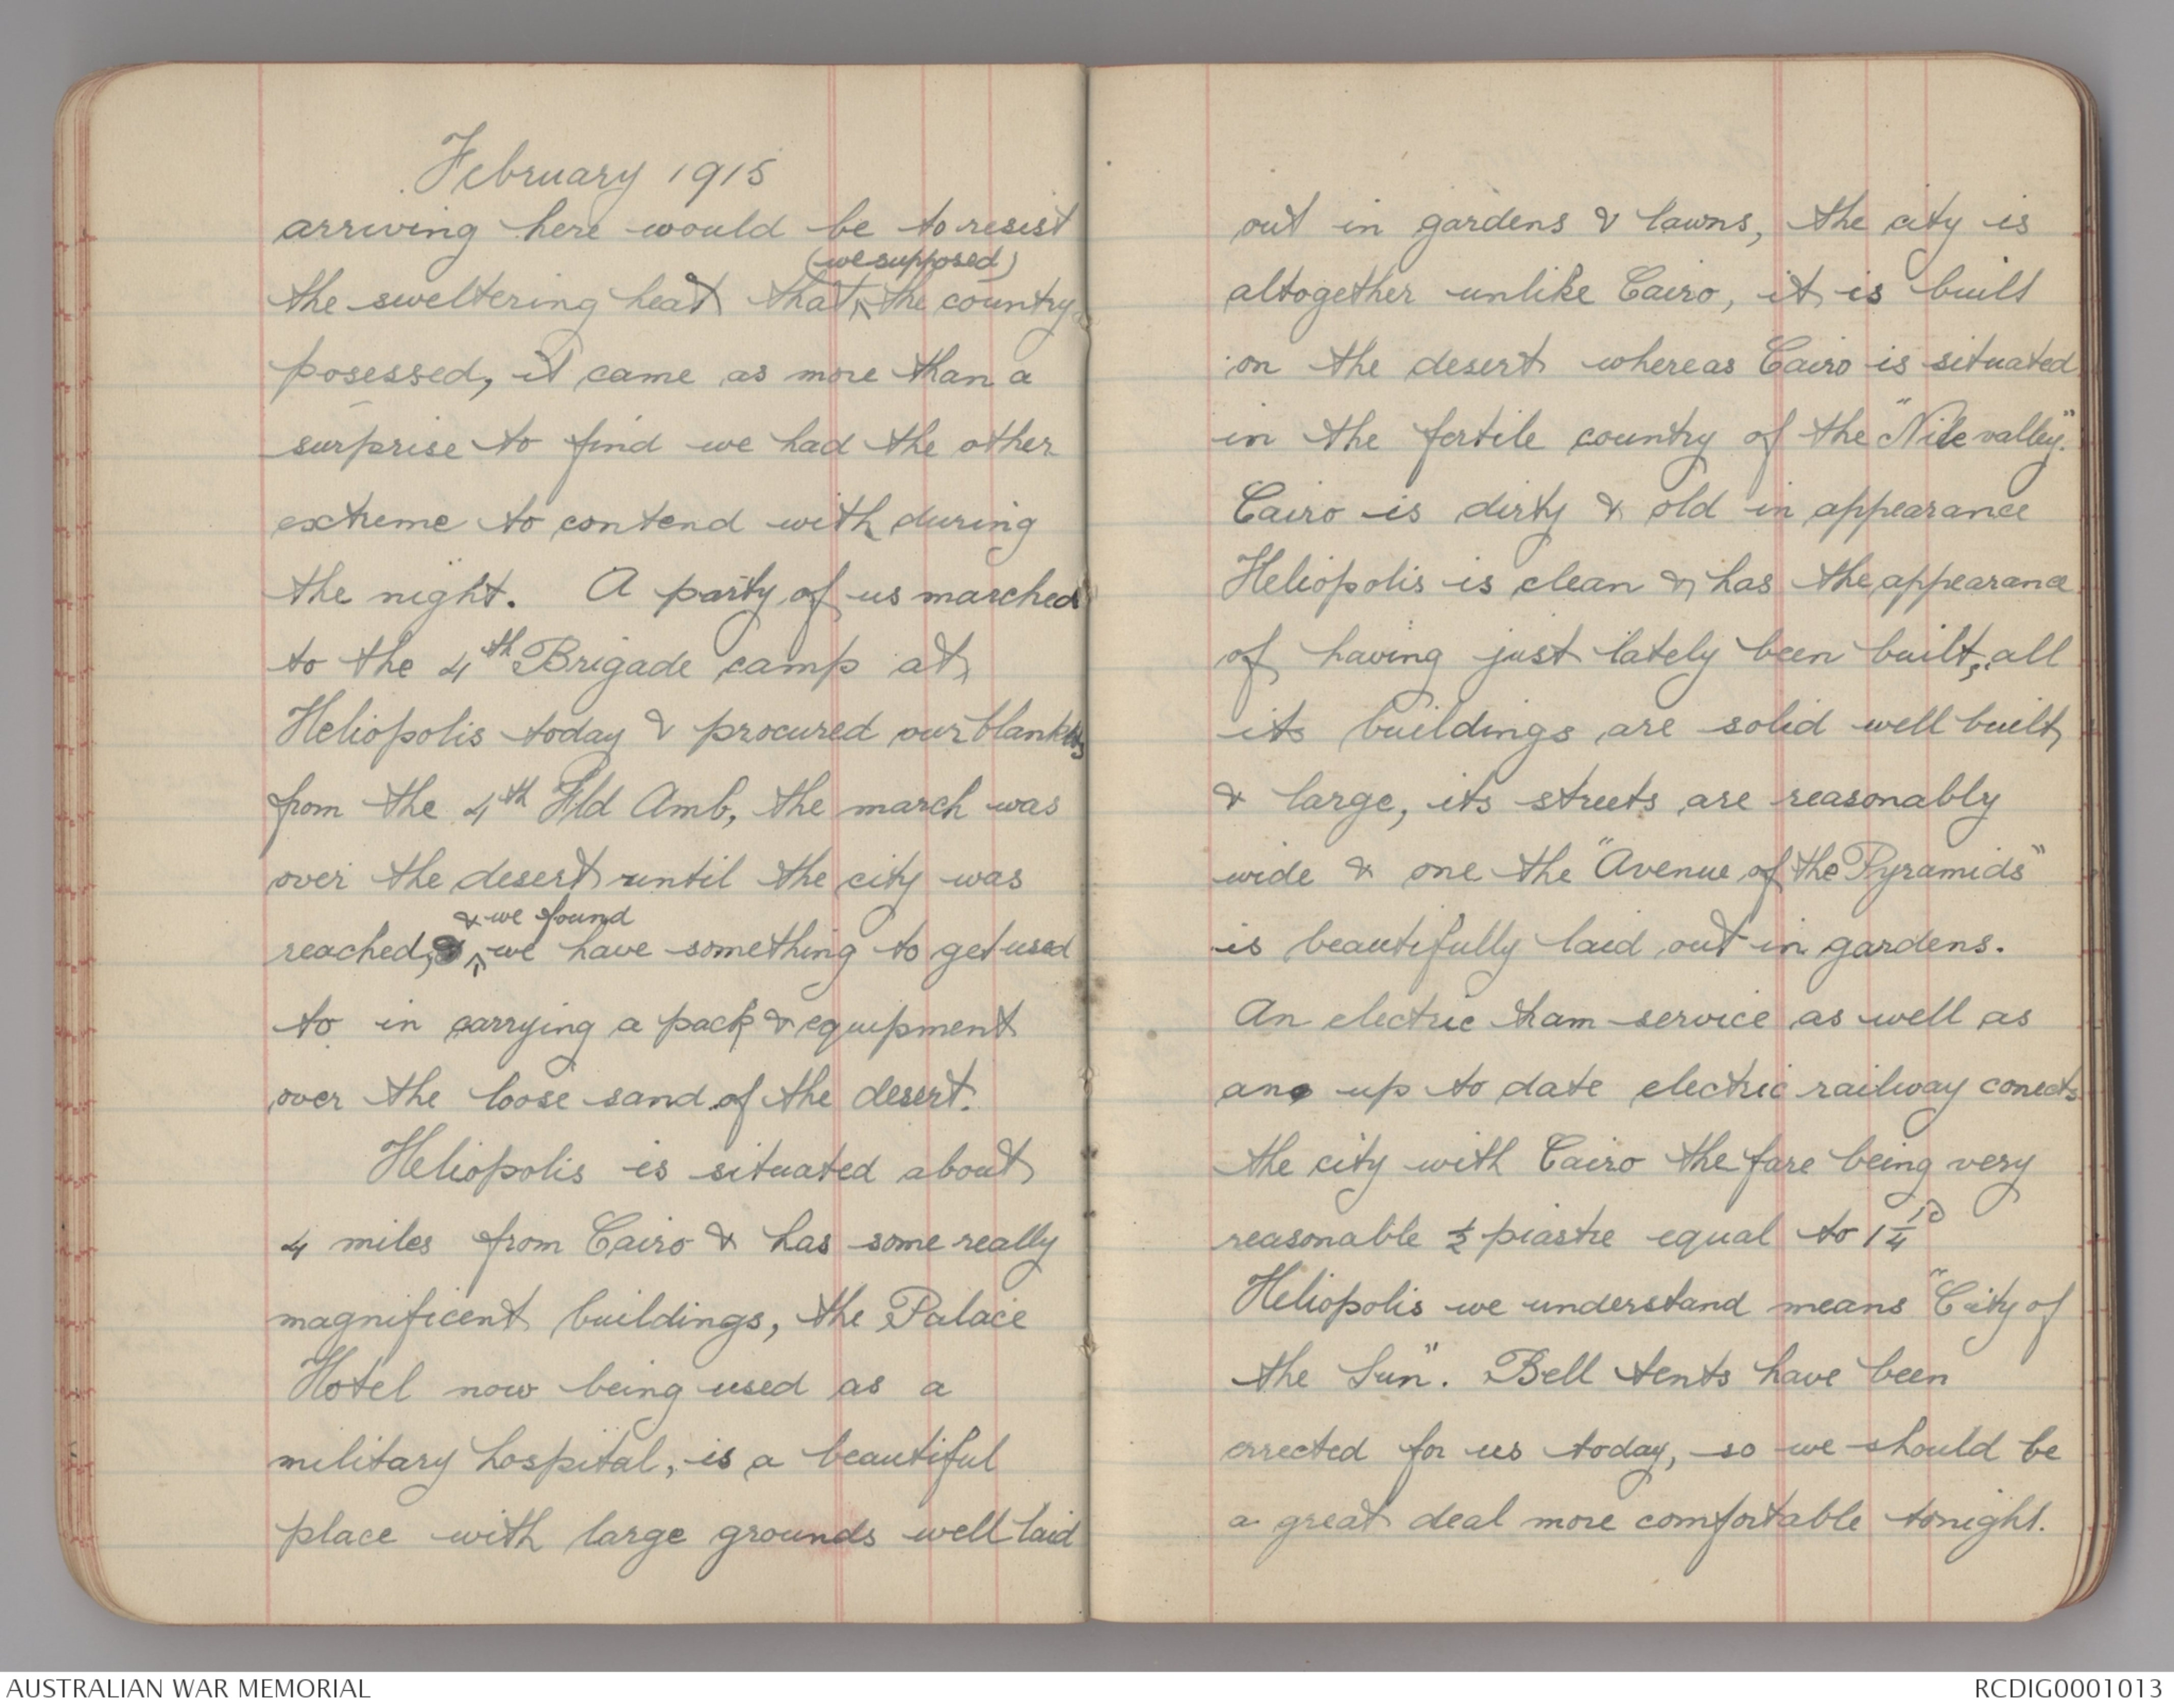 February 1915
arriving here would be to resist
(we supposed)
the sweltering heat that ^ the country
posessed, it came as more than a
surprise to find we had the other
extreme to contend with during
the night. A party of us marched
to the 4th Brigade camp at
Heliopolis today & procured our blankets
from the 4th Fld Amb, the march was
over the desert until the city was
& we found
reached, ^ we have something to get used
to in carrying a pack & equipment
over the loose sand of the desert.
Heliopolis is situated about
4 miles from Cairo & has some really
magnificent buildings, the Palace
Hotel now being used as a
military hospital, is a beautiful
place with large grounds well laid
out in gardens & lawns, the city is
altogether unlike Cairo, it is built
on the desert whereas Cairo is situated
in the fertile country of the "Nile valley."
Cairo is dirty & old in appearance
Heliopolis is clean & has the appearance
of having just lately been built, all
its buildings are solid well built
& large, its streets are reasonably
wide & one the "Avenue of the Pyramids"
is beautifully laid out in gardens.
An electric tram service as well as
an up to date electric railway conects
the city with Cairo the fare being very
reasonable ½ piastre equal to 1¼d
Heliopolis we understand means "City of
the Sun". Bell tents have been
errected for us today, so we should be
a great deal more comfortable tonight.
AUSTRALIAN WAR MEMORIAL
RCDIG0001013